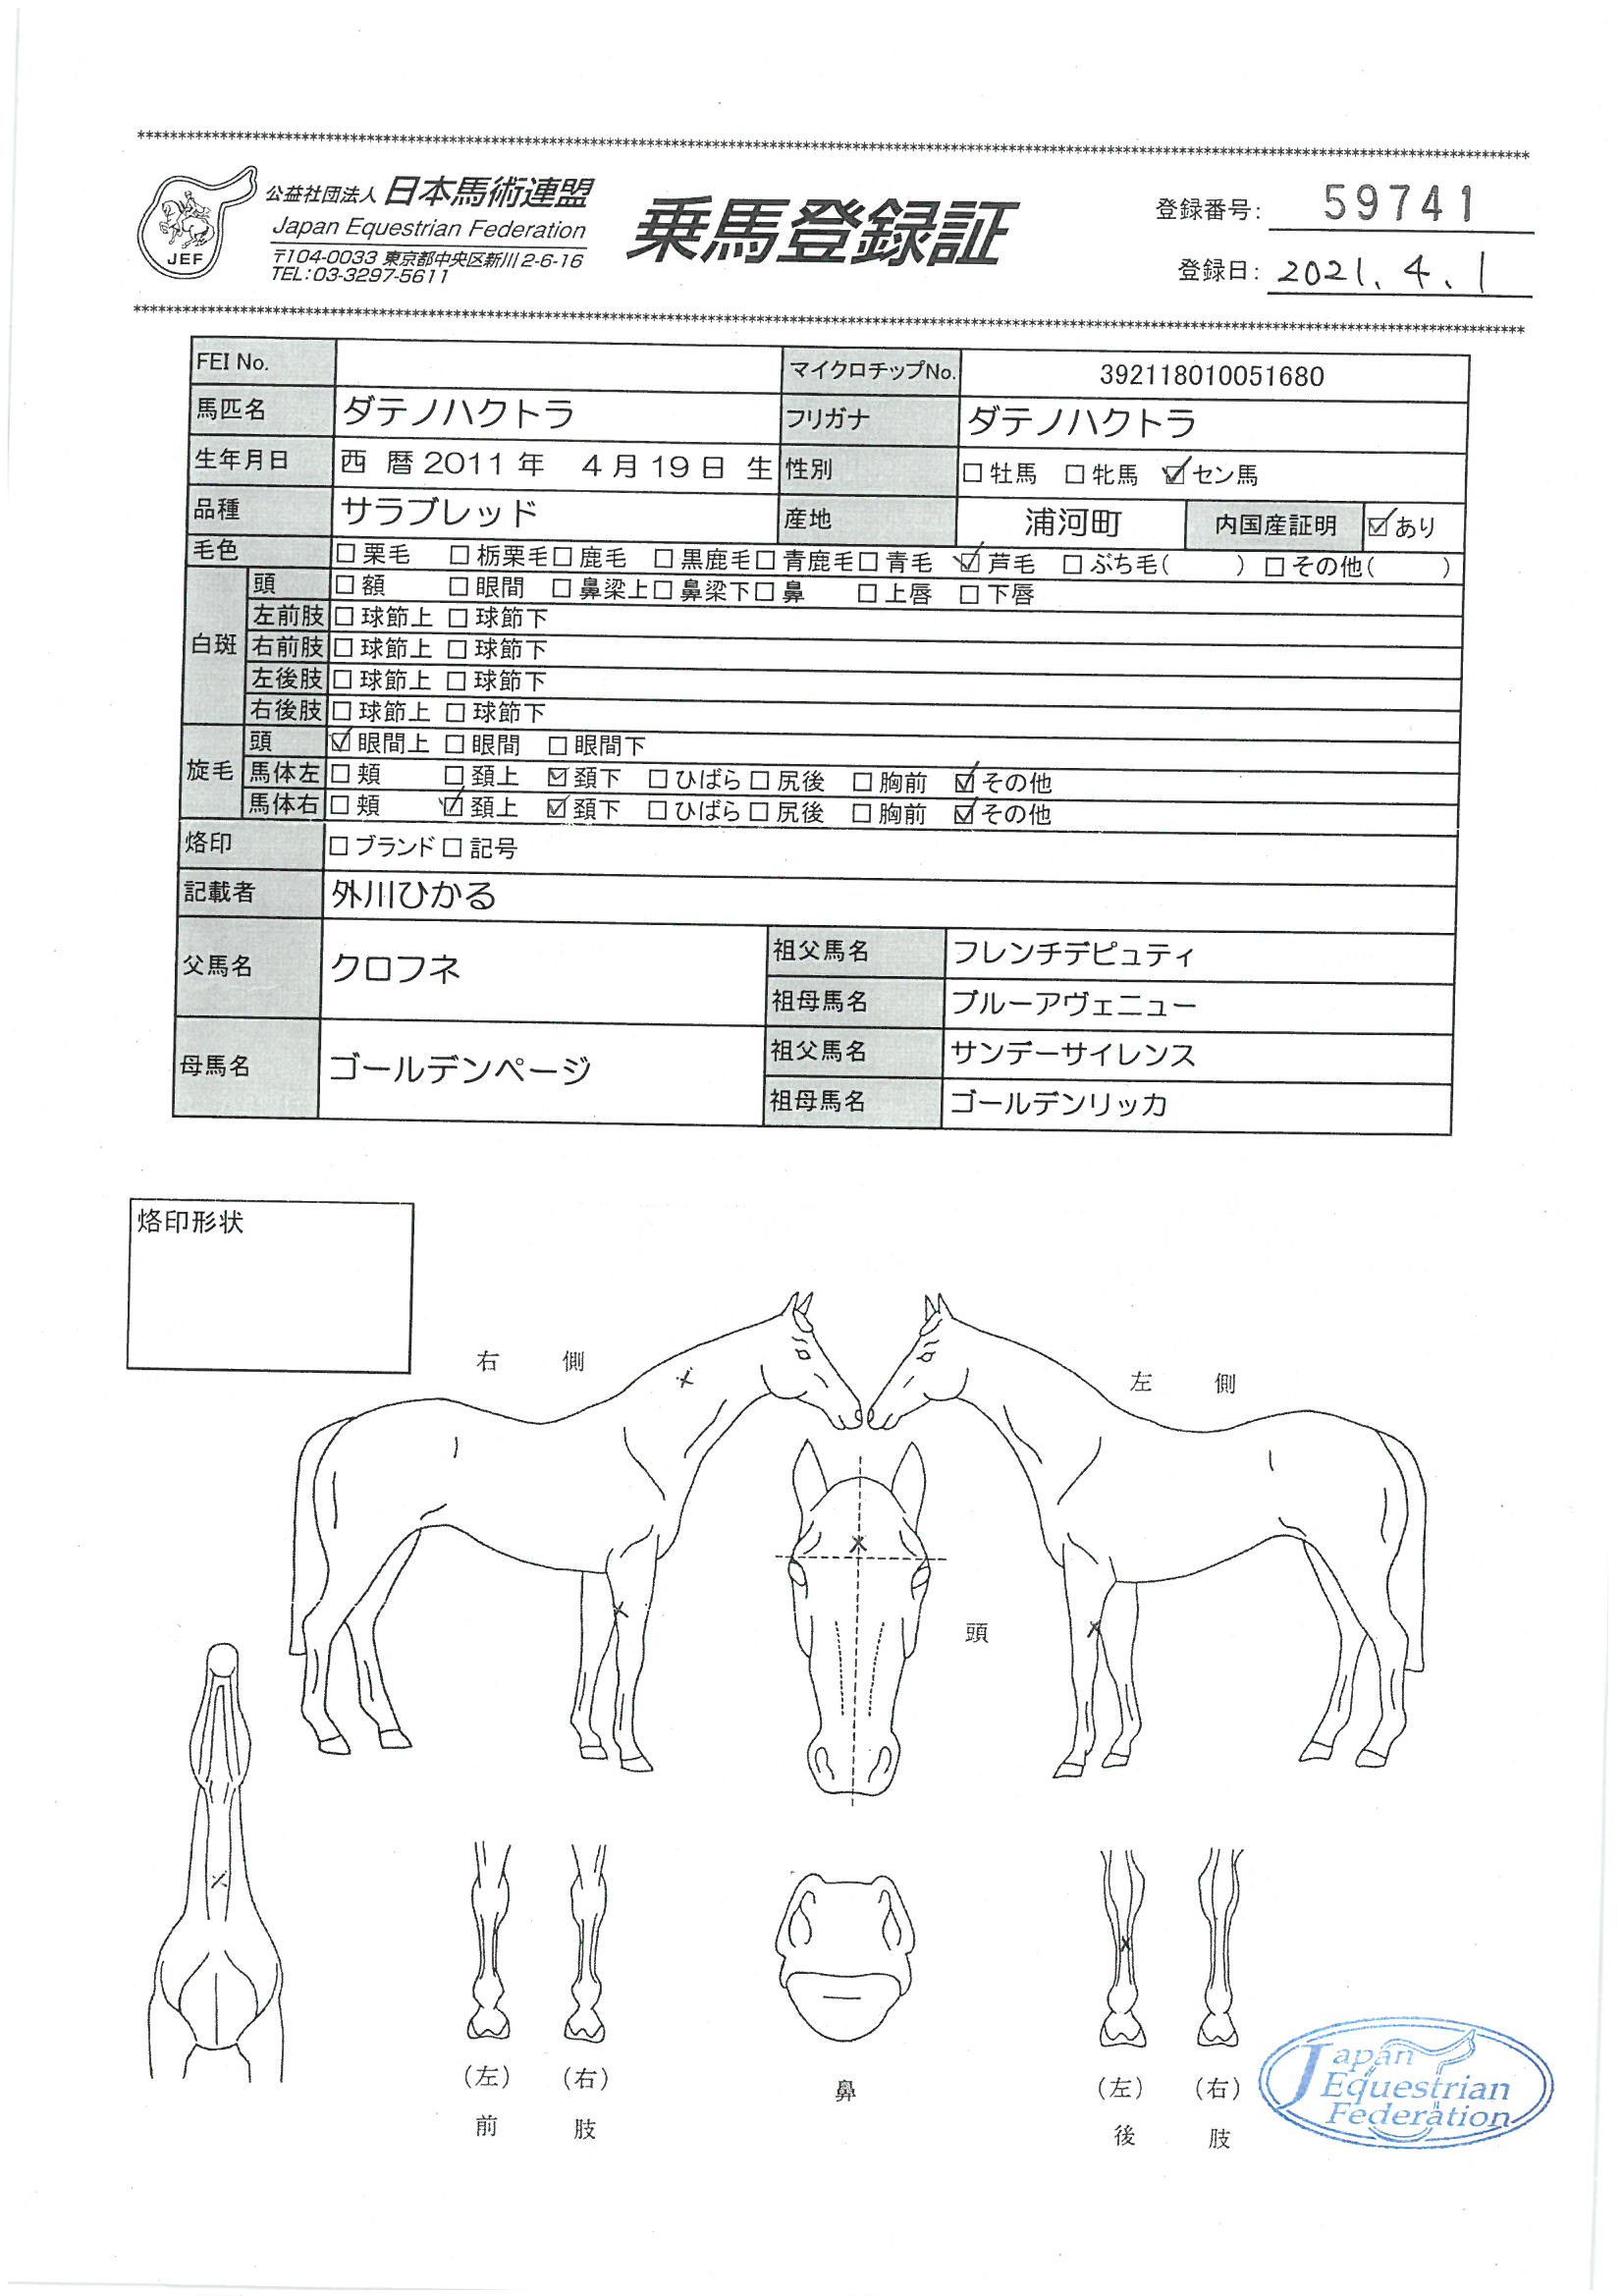 公益社団法人 日本馬術連盟
Japan Equestrian Federation
〒104-0033 東京都中央区新川2-6-16
TEL:03-3297-5611
JEF
乗馬登録証
登録番号: 59741
登録日: 2021. 4. 1
FEI No. マイクロチップNo. 392118010051680
馬匹名 ダテノハクトラ フリガナ ダテノハクトラ
生年月日 西暦2011年 4月19日 生 性別 □牡馬 □牝馬 ☑セン馬
品種 サラブレッド 産地 浦河町 内国産証明 ☑あり
毛色 □栗毛 □栃栗毛 □鹿毛 □黒鹿毛 □青鹿毛 □青毛 ☑芦毛 □ぶち毛( ) □その他( )
白斑
頭 □額 □眼間 □鼻梁上 □鼻梁下 □鼻 □上唇 □下唇
左前肢 □球節上 □球節下
右前肢 □球節上 □球節下
左後肢 □球節上 □球節下
右後肢 □球節上 □球節下
旋毛
頭 ☑眼間上 □眼間 □眼間下
馬体左 □頬 □頚上 ☑頚下 □ひばら □尻後 □胸前 ☑その他
馬体右 □頬 ☑頚上 ☑頚下 □ひばら □尻後 □胸前 ☑その他
烙印 □ブランド □記号
記載者 外川ひかる
父馬名 クロフネ 祖父馬名 フレンチデピュティ
祖母馬名 ブルーアヴェニュー
母馬名 ゴールデンページ 祖父馬名 サンデーサイレンス
祖母馬名 ゴールデンリッカ
烙印形状
右 側
左 側
頭
(左) (右)
前 肢
鼻
(左) (右)
後 肢
Japan
Equestrian
Federation